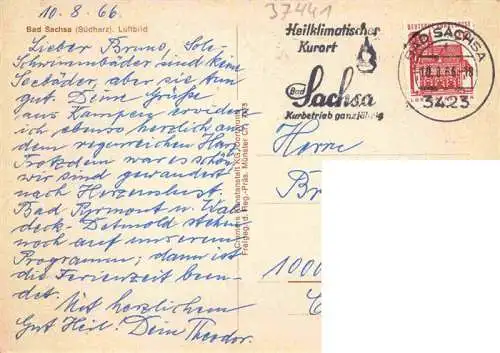 10.8.66.
37441
Bad Sachsa (Südharz). Luftbild
Lieber Bruno, Sole,
Schwimmbäder sind keine
Seebäder, aber sie tun
gut. Deine Grüße
aus Kampen erwidere
ich ebenso herzlich aus
dem regenreichen Harz.
Trotzdem war es schön,
wir sind gewandert
nach Herzenslust.
Bad Pyrmont u. Wal-
deck-Detmold stehen
noch auf unserem
Programm; dann ist
die Ferienzeit been-
det.
Mit herzlichem
Gut Heil! Dein Theodor.
Cramers Kunstanstalt KG, Dortmund
Freigeg. d. Reg.-Präs. Münster
Heilklimatischer
Kurort
Bad
Sachsa
Kurbetrieb ganzjährig
BAD SACHSA
10.8.66-18
3423
Herrn
Br
1000